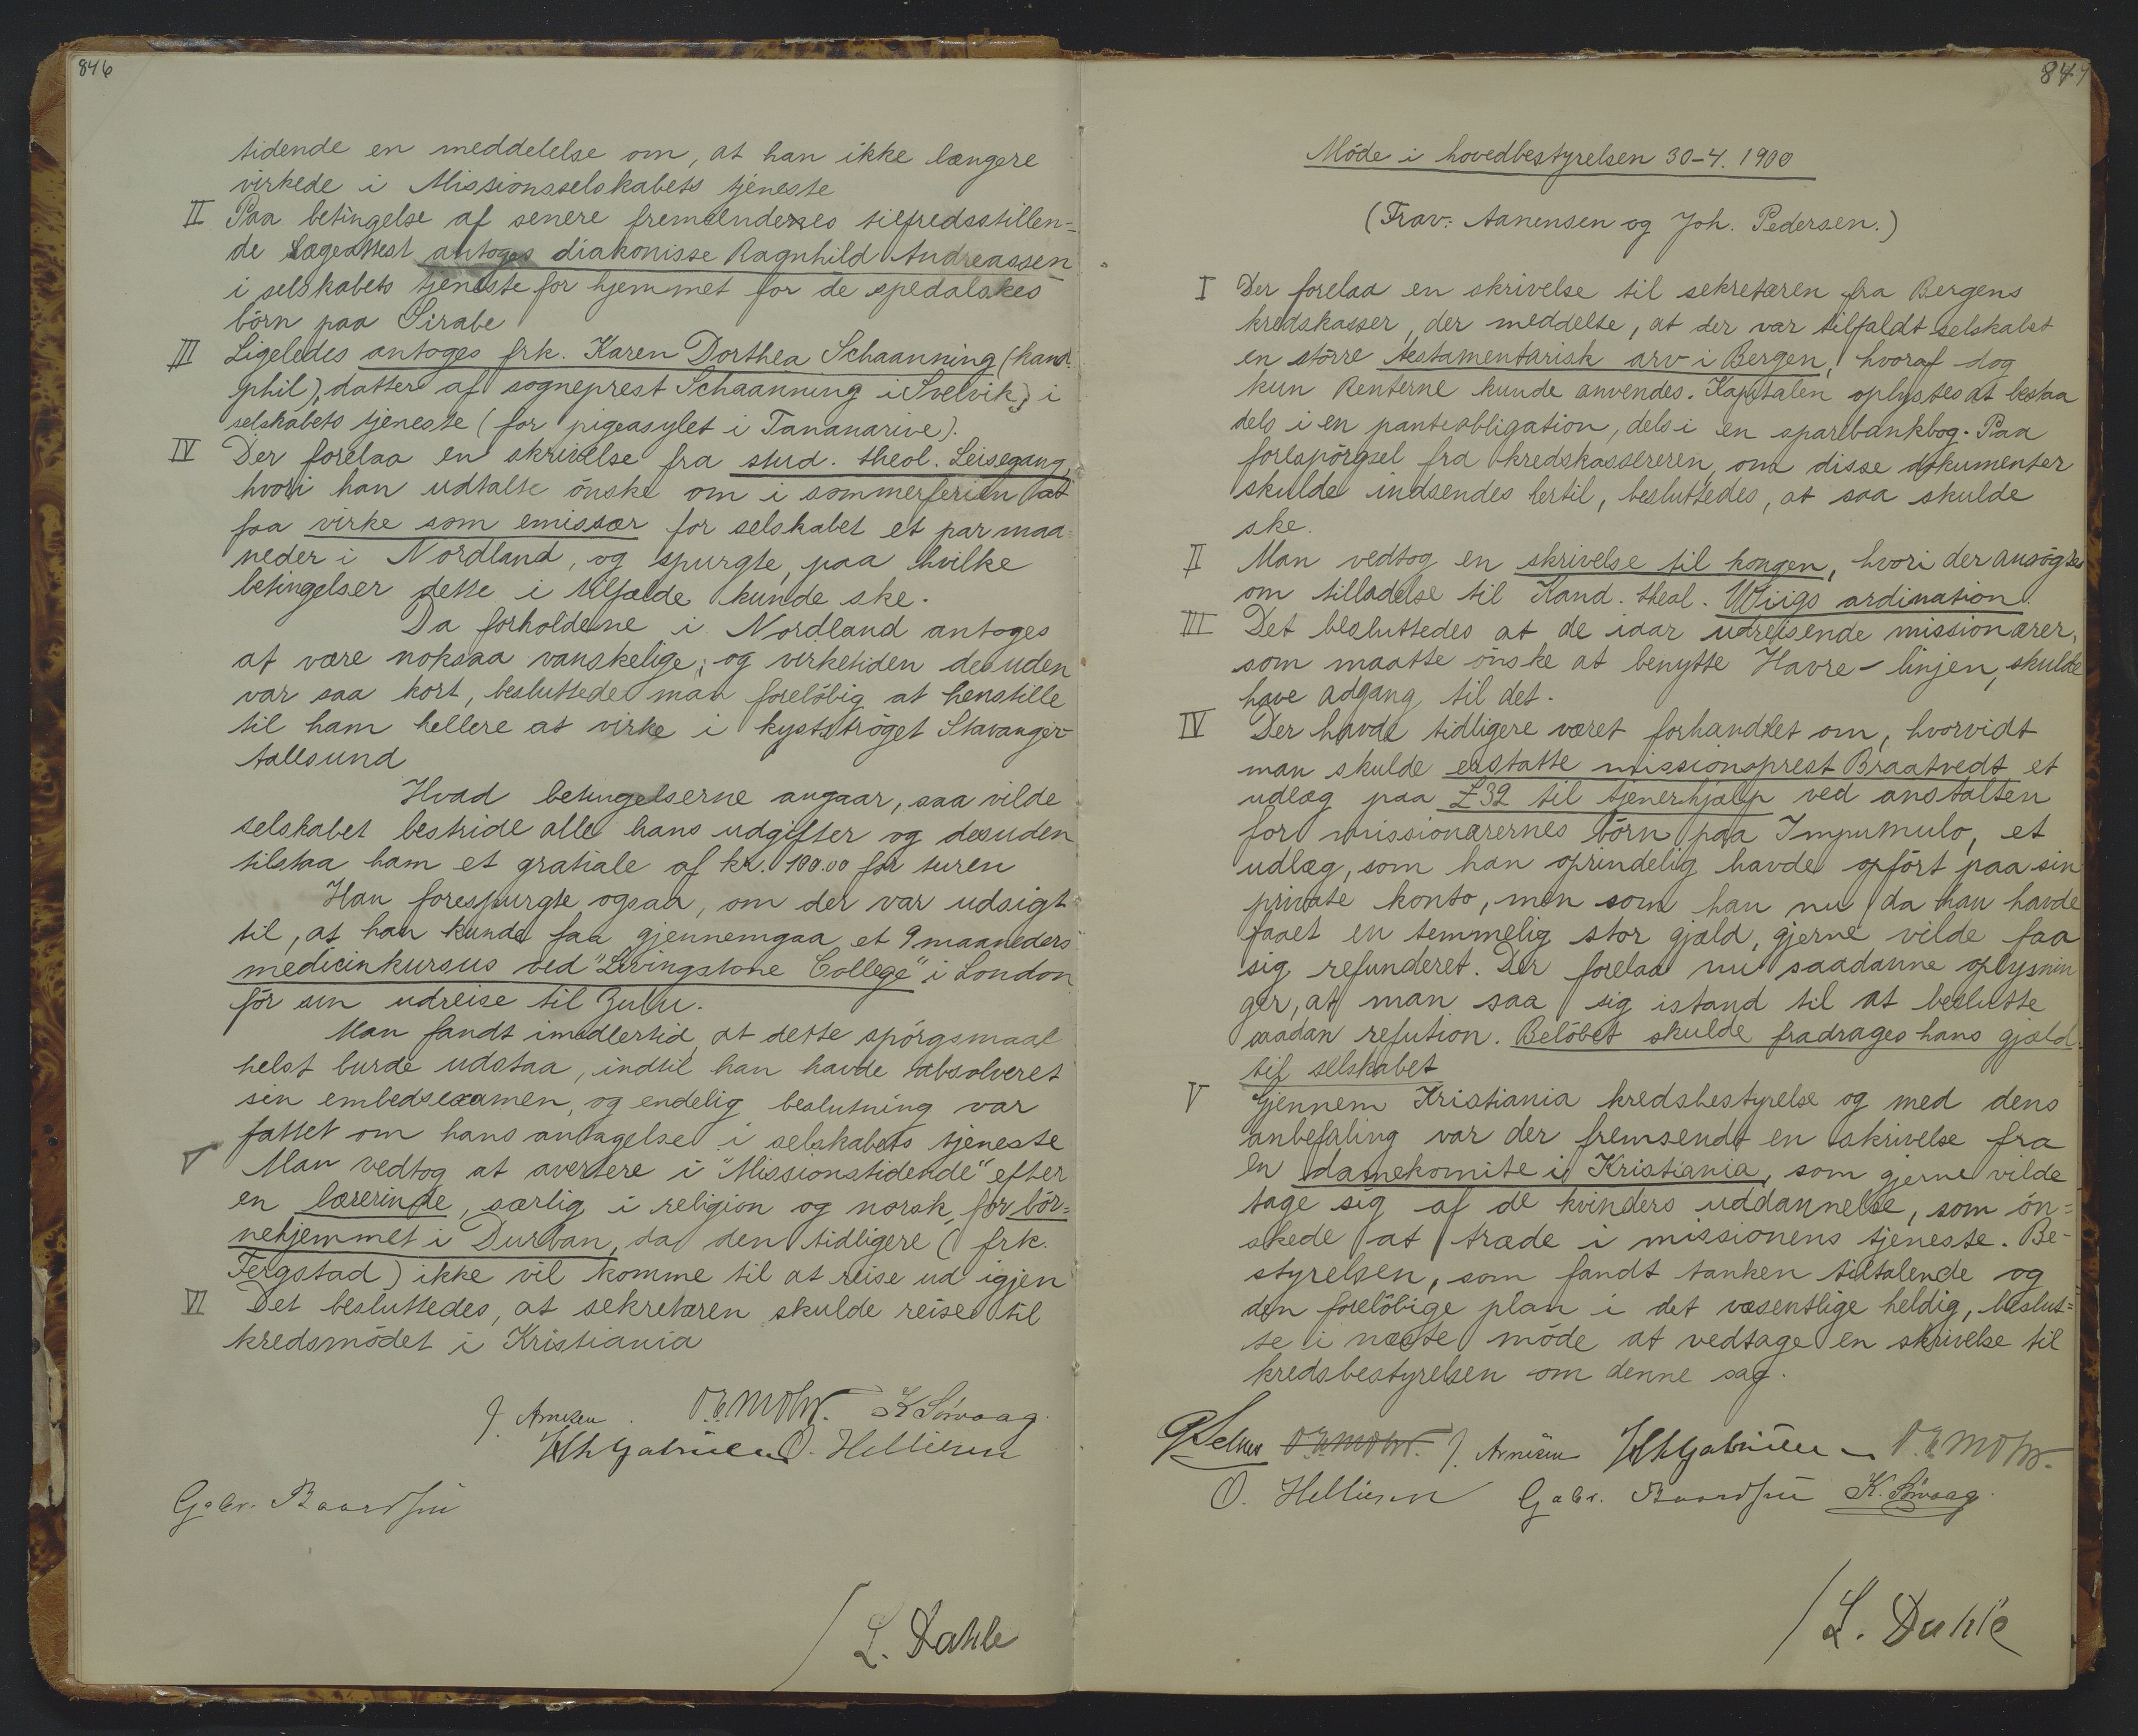 846
tidende en meddelelse om, at han ikke længere
virkede i Missionsselskabets tjeneste
II Paa betingelse af senere fremsendes tilfredsstillen=
de lægeattest antoges diakonisse Ragnhild Andreassen
i selskabets tjeneste for hjemmet for de spedalskes
börn paa Sirabe
III Ligeledes antoges frk. Karen Dorthea Schaanning (kand.
phil), datter af sogneprest Schaanning i Svelvik, i
selskabets tjeneste (for pigeasylet i Tananarive).
IV Der forelaa en skrivelse fra stud. theol. Leisegang,
hvori han udtalte önske om i sommerferien at
faa virke som emissær for selskabet et par maa=
neder i Nordland, og spurgte, paa hvilke
betingelser dette i tilfælde kunde ske.
Da forholdene i Nordland antoges
at være noksaa vanskelige, og virketiden desuden
var saa kort, besluttede man forelöbig at henstille
til ham hellere at virke i kystströget Stavanger-
Aallesund
Hvad betingelserne angaar, saa vilde
selskabet bestride alle hans udgifter og desuden
tilstaa ham et gratiale af kr. 100.00 for turen
Han forespurgte ogsaa, om der var udsigt
til, at han kunde faa gjennemgaa et 9 maaneders
medicinkursus ved "Livingstone College" i London
för sin udreise til Zulu.
Man fandt imidlertid, at dette spörgsmaal
helst burde udstaa, indtil han havde absolveret
sin embedsexamen, og endelig beslutning var
fattet om hans antagelse i selskabets tjeneste
V Man vedtog at avertere i "Missionstidende" efter
en lærerinde, særlig i religion og norsk, for bör=
nehjemmet i Durban, da den tidligere (frk.
Fergstad) ikke vil komme til at reise ud igjen
VI Det besluttedes, at sekretæren skulde reise til
kredsmödet i Kristiania
J. Arnesen. O. E. Mohr. K Sömaag.
Gabrielsen O. Helliesen
Gabr. Baardsen
/ L. Dahle
847
Möde i hovedbestyrelsen 30-4. 1900
(Frav: Aanensen og Joh. Pedersen.)
I Der forelaa en skrivelse til sekretæren fra Bergens
kredskasser, der meddelte, at der var tilfaldt selskabet
en större testamentarisk arv i Bergen, hvoraf dog
kun Renterne kunde anvendes. Kapitalen oplystes at bestaa
dels i en panteobligation, dels i en sparebankbog. Paa
forespörgsel fra kredskassereren, om disse dokumenter
skulde indsendes hertil, besluttedes, at saa skulde
ske.
II Man vedtog en skrivelse til kongen, hvori der ansögtes
om tilladelse til Kand. theol. Wiigs ordination.
III Det besluttedes at de iaar udreisende missionærer,
som maatte önske at benytte Havre-linjen, skulde
have adgang til det.
IV Der havde tidligere været forhandlet om, hvorvidt
man skulde erstatte missionsprest Braatvedt et
udlæg paa £32 til tjenerhjælp ved anstalten
for missionærernes börn paa Impumulo, et
udlæg, som han oprindelig havde opfört paa sin
private konto, men som han nu, da han havde
faaet en temmelig stor gjæld, gjerne vilde faa
sig refunderet. Der forelaa nu saadanne oplysnin
ger, at man saa sig istand til at beslutte
saadan refution. Belöbet skulde fradrages hans gjæld
til selskabet
V Gjennem Kristiania kredsbestyrelse og med dens
anbefaling var der fremsendt en skrivelse fra
en damekomite i Kristiania, som gjerne vilde
tage sig af de kvinders uddannelse, som ön=
skede at træde i missionens tjeneste. Be-
styrelsen, som fandt tanken tiltalende og
den forelöbige plan i det væsentlige heldig, beslut=
te i næste möde at vedtage en skrivelse til
kredsbestyrelsen om denne sag.
O. E. Mohr. J. Arnesen Gabrielsen O. E. Mohr.
O. Helliesen Gabr. Baardsen K. Sömaag.
/ L. Dahle